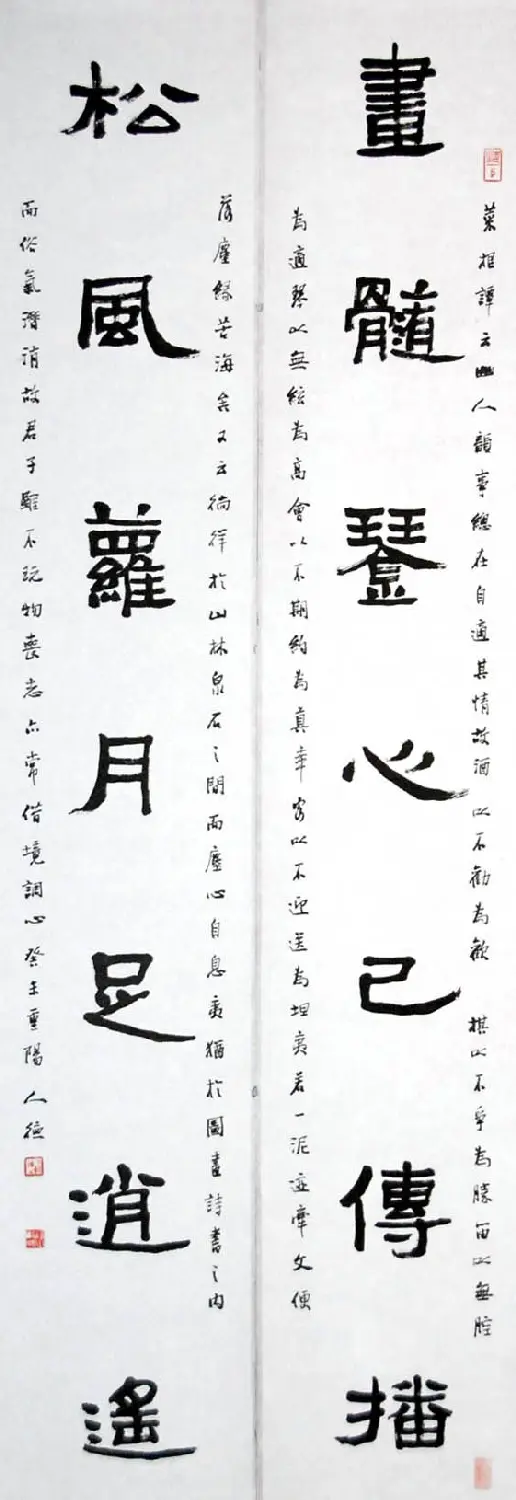 菜根譚云幽人韻事總在自適其情故酒以不勸為歡 棋以不爭為勝笛以無腔
畫髓琴心已傳播
為適琴以無絃為高會以不期約為真率客以不迎送為坦夷若一泥迹牽文便
落塵緣苦海矣又云徜徉於山林泉石之間而塵心自息夷猶於圖畫詩書之內
松風蘿月足逍遙
而俗氣潛消故君子雖不玩物喪志亦常借境調心癸未重陽人德